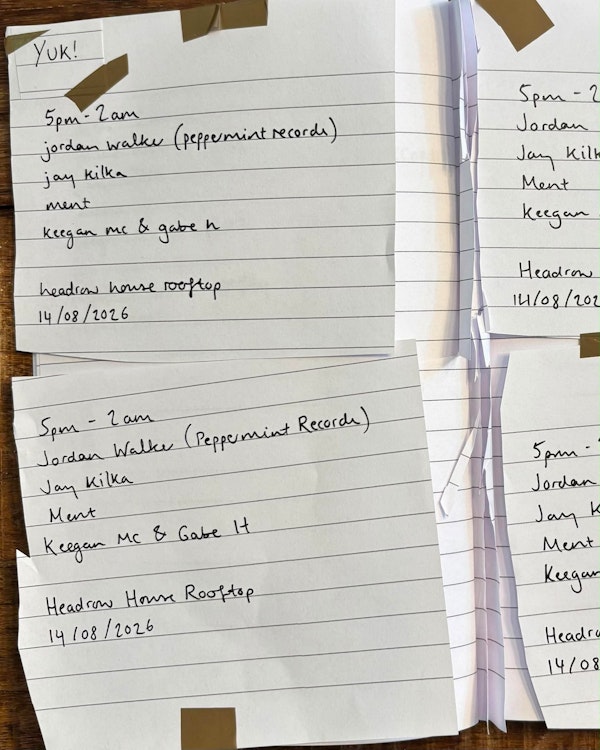 Yuk!
5pm - 2am
jordan walker (peppermint records)
jay kilka
ment
keegan mc & gabe h
headrow house rooftop
14/08/2026
5pm - 2am
Jordan Walker (Peppermint Records)
Jay Kilka
Ment
Keegan Mc & Gabe H
Headrow House Rooftop
14/08/2026
5pm - 2
Jordan
Jay Kilk
Ment
Keegan
Headrow
14/08/202
5pm -
Jordan
Jay K
Ment
Keegan
Headro
14/08